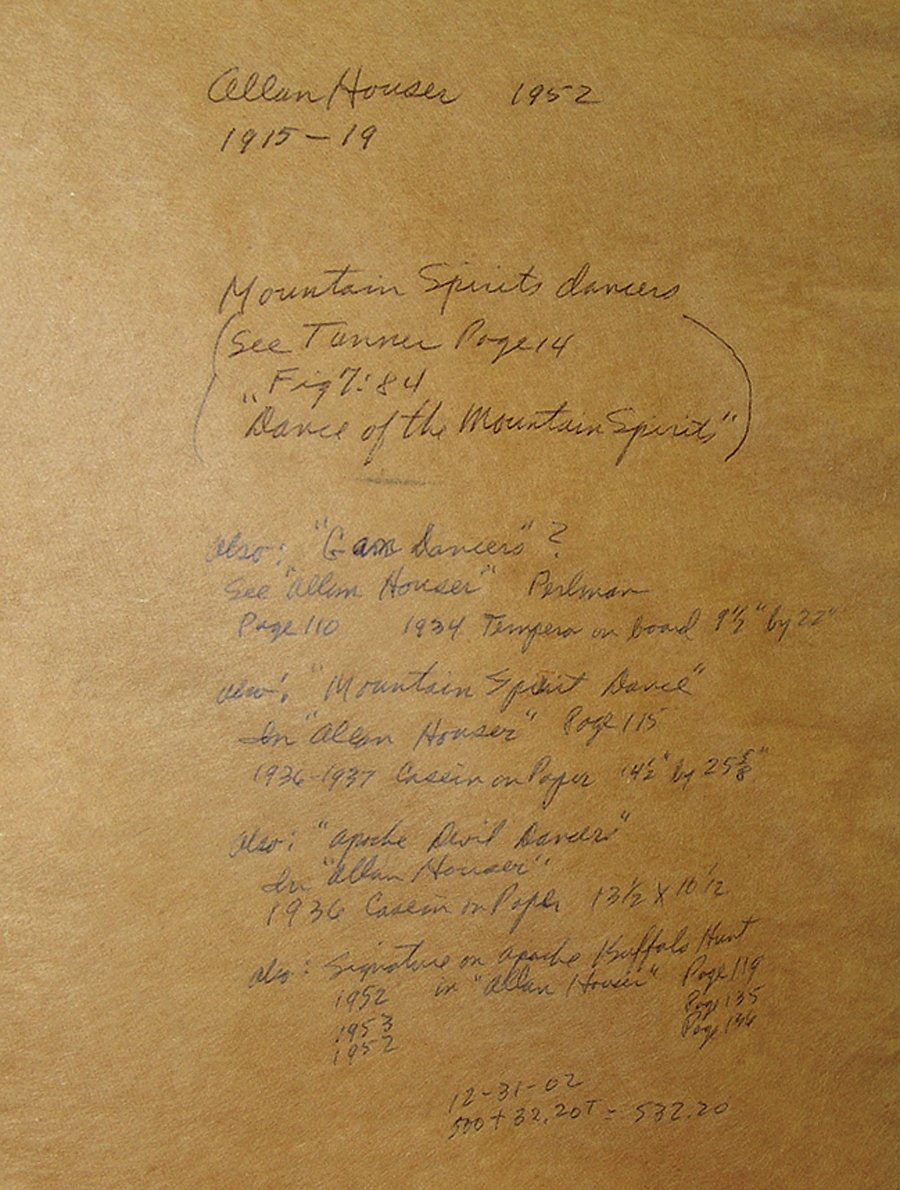 Allan Houser 1952
1915-19
Mountain Spirits dancers
(See Tanner Page 14
Fig 7:84
"Dance of the Mountain Spirits")
also: "Gaan Dancers"?
See "Allan Houser" Perlman
Page 110 1934 Tempera on board 9½" by 22"
also: "Mountain Spirit Dance"
In "Allan Houser" Page 115
1936-1937 Casein on Paper 14½" by 25⅝"
also: "Apache Devil Dancers"
In "Allan Houser"
1936 Casein on Paper 13½ X 10½
also: Signature on Apache Buffalo Hunt
1952 in "Allan Houser" Page 119
1953 Page 135
1952 Page 136
12-31-02
500 + 32.20T = 532.20